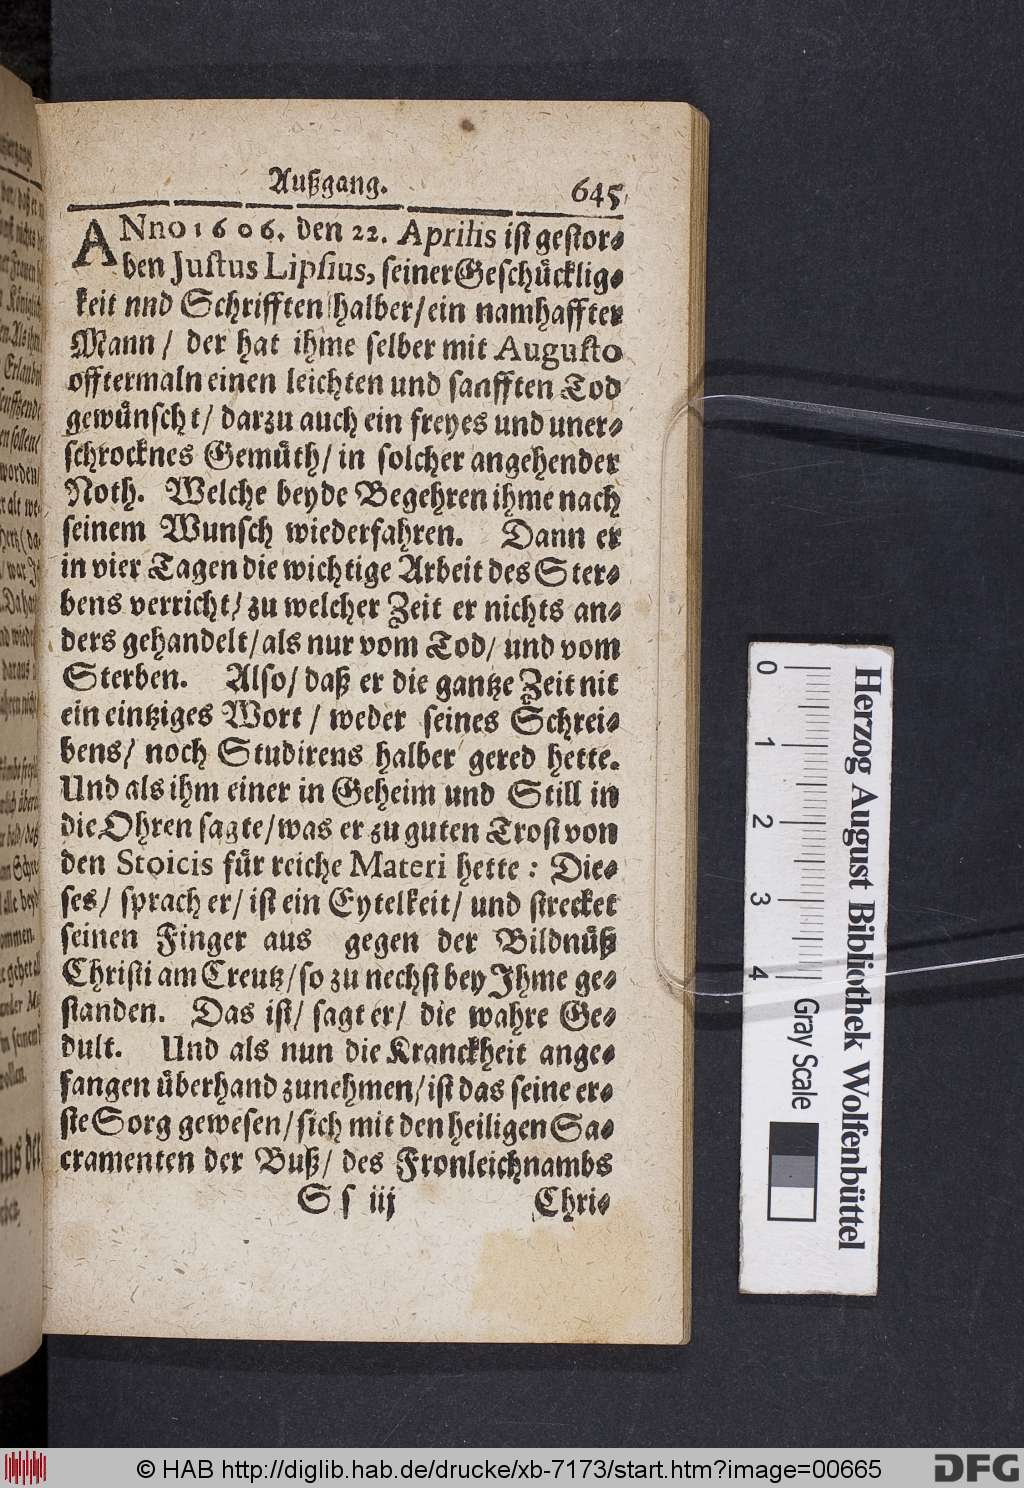 Außgang.
645
ANno 1606. den 22. Aprilis ist gestor-
ben Justus Lipsius, seiner Geschücklig-
keit nnd Schrifften halber/ ein namhaffter
Mann/ der hat ihme selber mit Augusto
offtermaln einen leichten und sanfften Tod
gewünscht/ darzu auch ein freyes und uner-
schrocknes Gemüth/ in solcher angehender
Noth. Welche beyde Begehren ihme nach
seinem Wunsch wiederfahren. Dann er
in vier Tagen die wichtige Arbeit des Ster-
bens verricht/ zu welcher Zeit er nichts an-
ders gehandelt/ als nur vom Tod/ und vom
Sterben. Also/ daß er die gantze Zeit nit
ein eintziges Wort/ weder seines Schrei-
bens/ noch Studirens halber gered hette.
Und als ihm einer in Geheim und Still in
die Ohren sagte/ was er zu guten Trost von
den Stoicis für reiche Materi hette: Die-
ses/ sprach er/ ist ein Eytelkeit/ und strecket
seinen Finger aus gegen der Bildnüß
Christi am Creutz/ so zu nechst bey Jhme ge-
standen. Das ist/ sagt er/ die wahre Ge-
dult. Und als nun die Kranckheit ange-
fangen überhand zunehmen/ ist das seine er-
ste Sorg gewesen/ sich mit den heiligen Sa-
cramenten der Buß/ des Fronleichnambs
S s iij
Chri-
Herzog August Bibliothek Wolfenbüttel
0 1 2 3 4
Gray Scale
© HAB http://diglib.hab.de/drucke/xb-7173/start.htm?image=00665
DFG